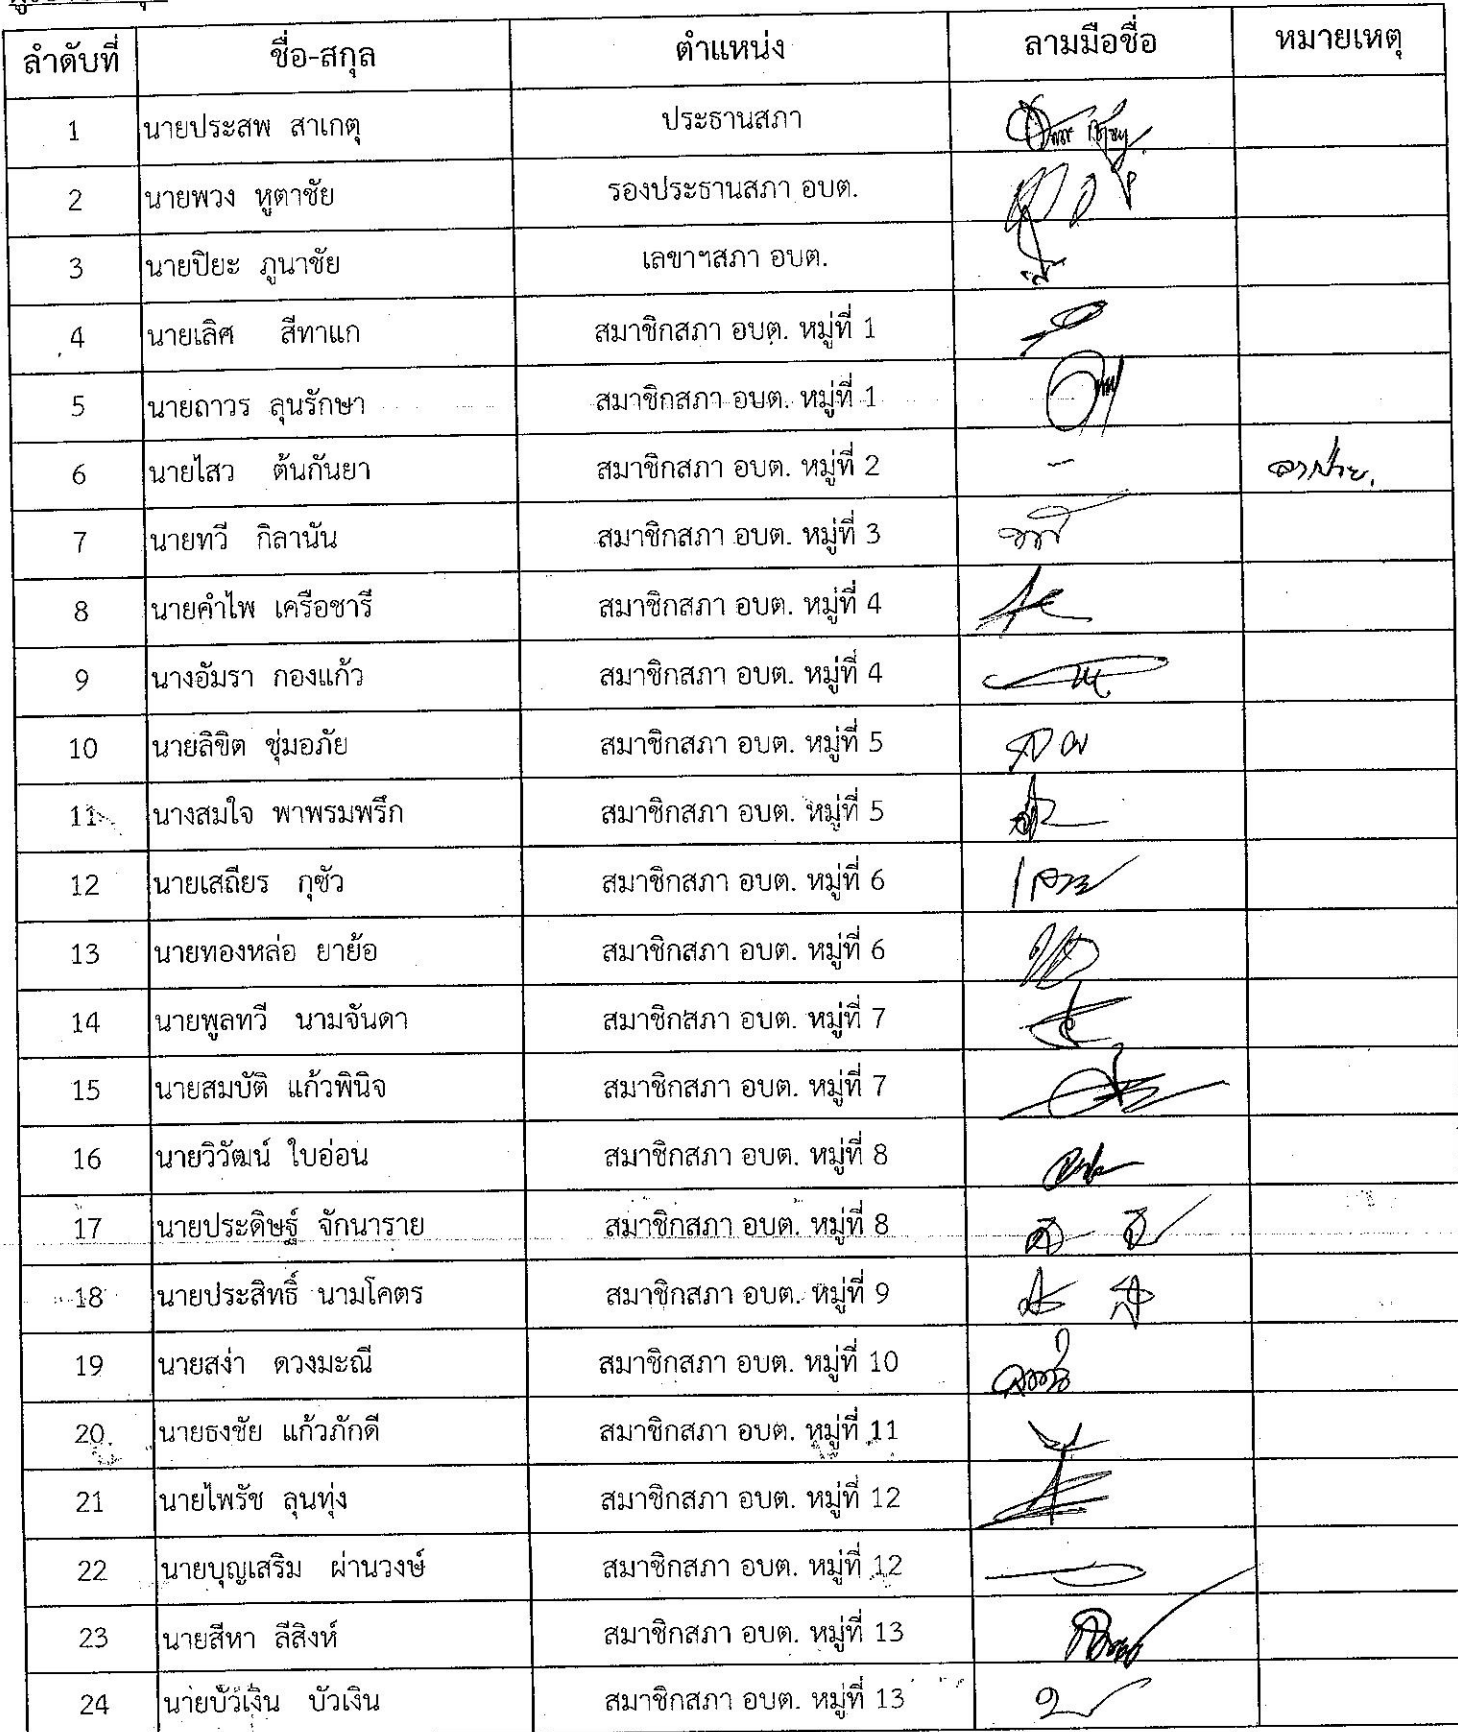 ลำดับที่ ชื่อ-สกุล ตำแหน่ง ลามมือชื่อ หมายเหตุ
1 นายประสพ สาเกตุ ประธานสภา
2 นายพวง หูตาชัย รองประธานสภา อบต.
3 นายปิยะ ภูนาชัย เลขาฯสภา อบต.
4 นายเลิศ สีทาแก สมาชิกสภา อบต. หมู่ที่ 1
5 นายถาวร ลุนรักษา สมาชิกสภา อบต. หมู่ที่ 1
6 นายไสว ต้นกันยา สมาชิกสภา อบต. หมู่ที่ 2 - ลาป่วย.
7 นายทวี กิลานัน สมาชิกสภา อบต. หมู่ที่ 3
8 นายคำไพ เครือชารี สมาชิกสภา อบต. หมู่ที่ 4
9 นางอัมรา กองแก้ว สมาชิกสภา อบต. หมู่ที่ 4
10 นายลิขิต ชุ่มอภัย สมาชิกสภา อบต. หมู่ที่ 5
11 นางสมใจ พาพรมพรึก สมาชิกสภา อบต. หมู่ที่ 5
12 นายเสถียร กุซัว สมาชิกสภา อบต. หมู่ที่ 6
13 นายทองหล่อ ยาย้อ สมาชิกสภา อบต. หมู่ที่ 6
14 นายพูลทวี นามจันดา สมาชิกสภา อบต. หมู่ที่ 7
15 นายสมบัติ แก้วพินิจ สมาชิกสภา อบต. หมู่ที่ 7
16 นายวิวัฒน์ ใบอ่อน สมาชิกสภา อบต. หมู่ที่ 8
17 นายประดิษฐ์ จักนาราย สมาชิกสภา อบต. หมู่ที่ 8
18 นายประสิทธิ์ นามโคตร สมาชิกสภา อบต. หมู่ที่ 9
19 นายสง่า ดวงมะณี สมาชิกสภา อบต. หมู่ที่ 10
20 นายธงชัย แก้วภักดี สมาชิกสภา อบต. หมู่ที่ 11
21 นายไพรัช ลุนทุ่ง สมาชิกสภา อบต. หมู่ที่ 12
22 นายบุญเสริม ผ่านวงษ์ สมาชิกสภา อบต. หมู่ที่ 12
23 นายสีหา ลีสิงห์ สมาชิกสภา อบต. หมู่ที่ 13
24 นายบัวเงิน บัวเงิน สมาชิกสภา อบต. หมู่ที่ 13